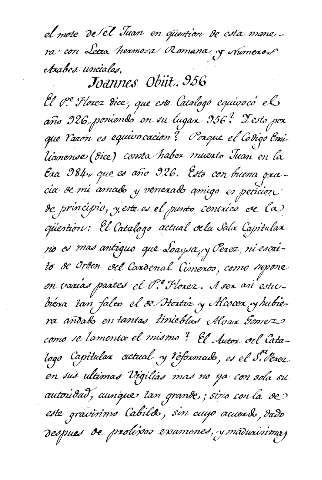 el mote de él Juan en qüestion de esta mane-
ra con Letra hermosa Romana, y Numeros
Arabes unciales.
Joannes Obüt. 956
El P.e Florez dice, que este Catalogo equivocó el
año 926 poniendo en su lugar 956? Y esto por
que razon es equivocacion? Porque el Codigo Emi-
lianense (dice) consta haber muerto Juan en la
Era 984, que es año 926. Esto con buena gra-
cia de mi amado y venerado amigo es peticion
de principio, y este es el punto centrico de la
qüestion: El Catalogo actual de la Sala Capitular
no es mas antiguo que Loaysa, y Perez, ni escri-
to de Orden del Cardenal Cisneros, como supone
en varias partes el P.e Florez. A ser asi estu-
biera tan falto el de Hortiz y Alcocer, y hubie-
ra andado en tantas tinieblas Alvar Gomez
como se lamenta el mismo? El Autor del Cata-
logo Capitular actual y reformado, es el S.r Perez
en sus ultimas Vigilias mas no ya con sola su
autoridad, aunque tan grande; sino con la de
este gravisimo Cabildo, sin cuyo acuerdo, dado
despues de prolixos examenes, y madurisimas